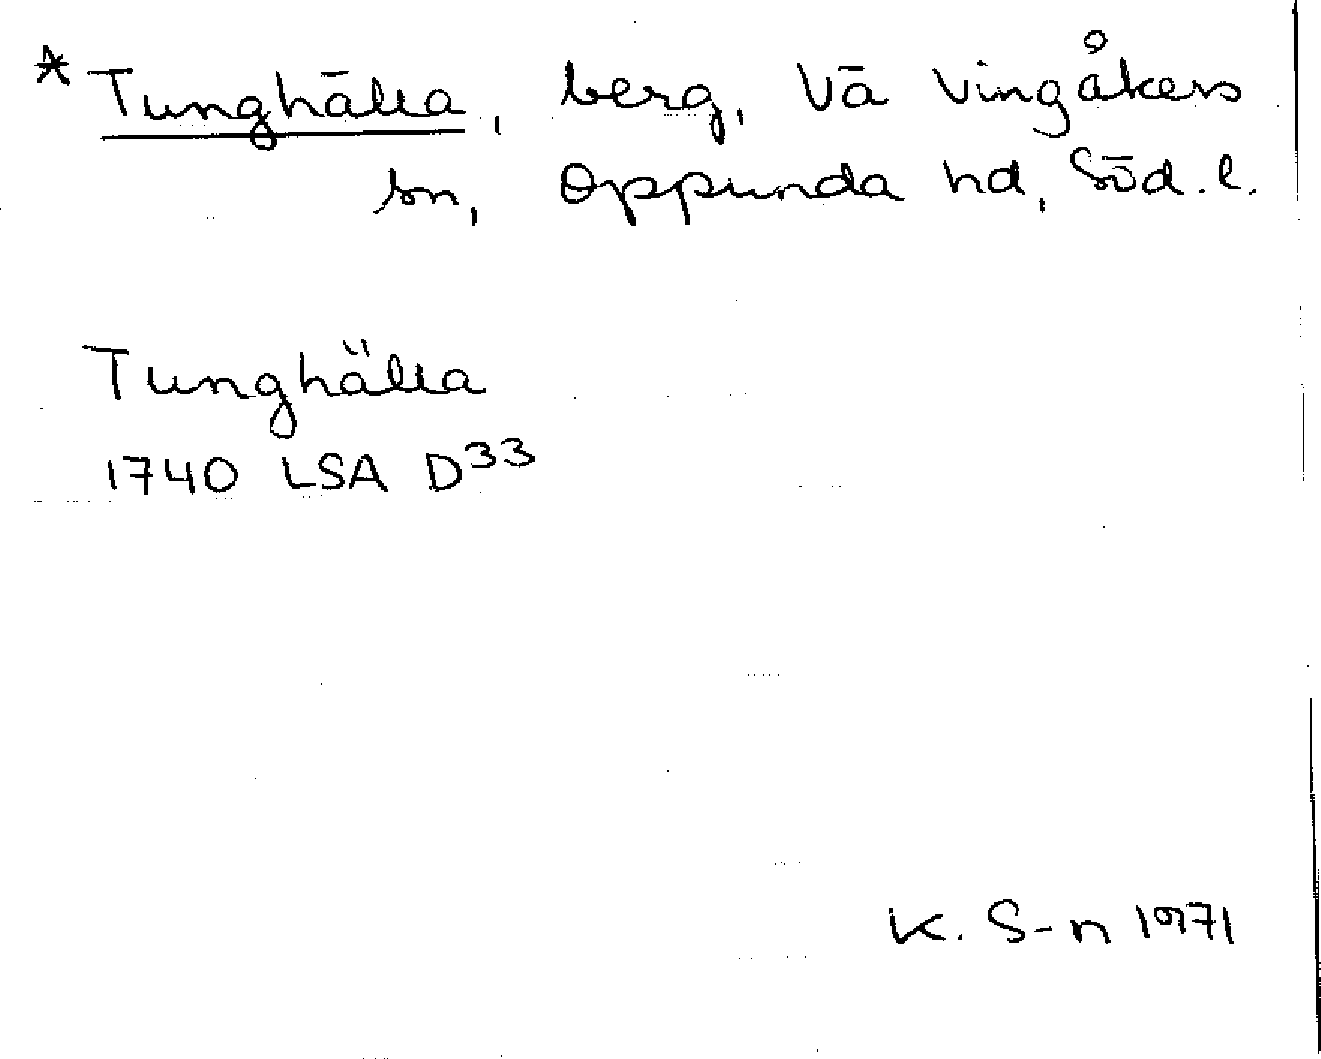 * Tunghälla, berg, Vä Vingåkers
sn, Oppunda hd, Söd. l.
Tunghälla
1740 LSA D33
K. S-n 1971